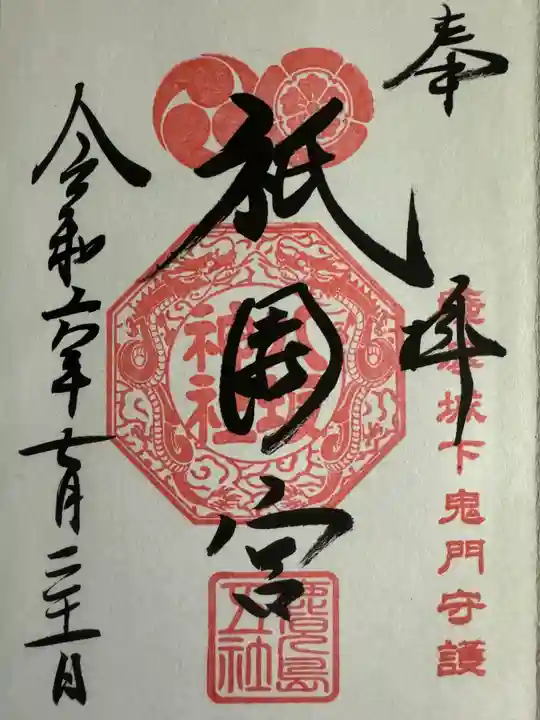 奉拝
鹿児島城下鬼門守護
祇園宮
八坂神社
鹿児島五社
令和六年七月二十一日